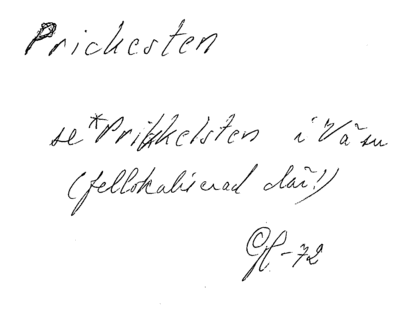 Prickesten
se *Prikkelsten i Väsu
(fellokaliserad där!)
GH-72